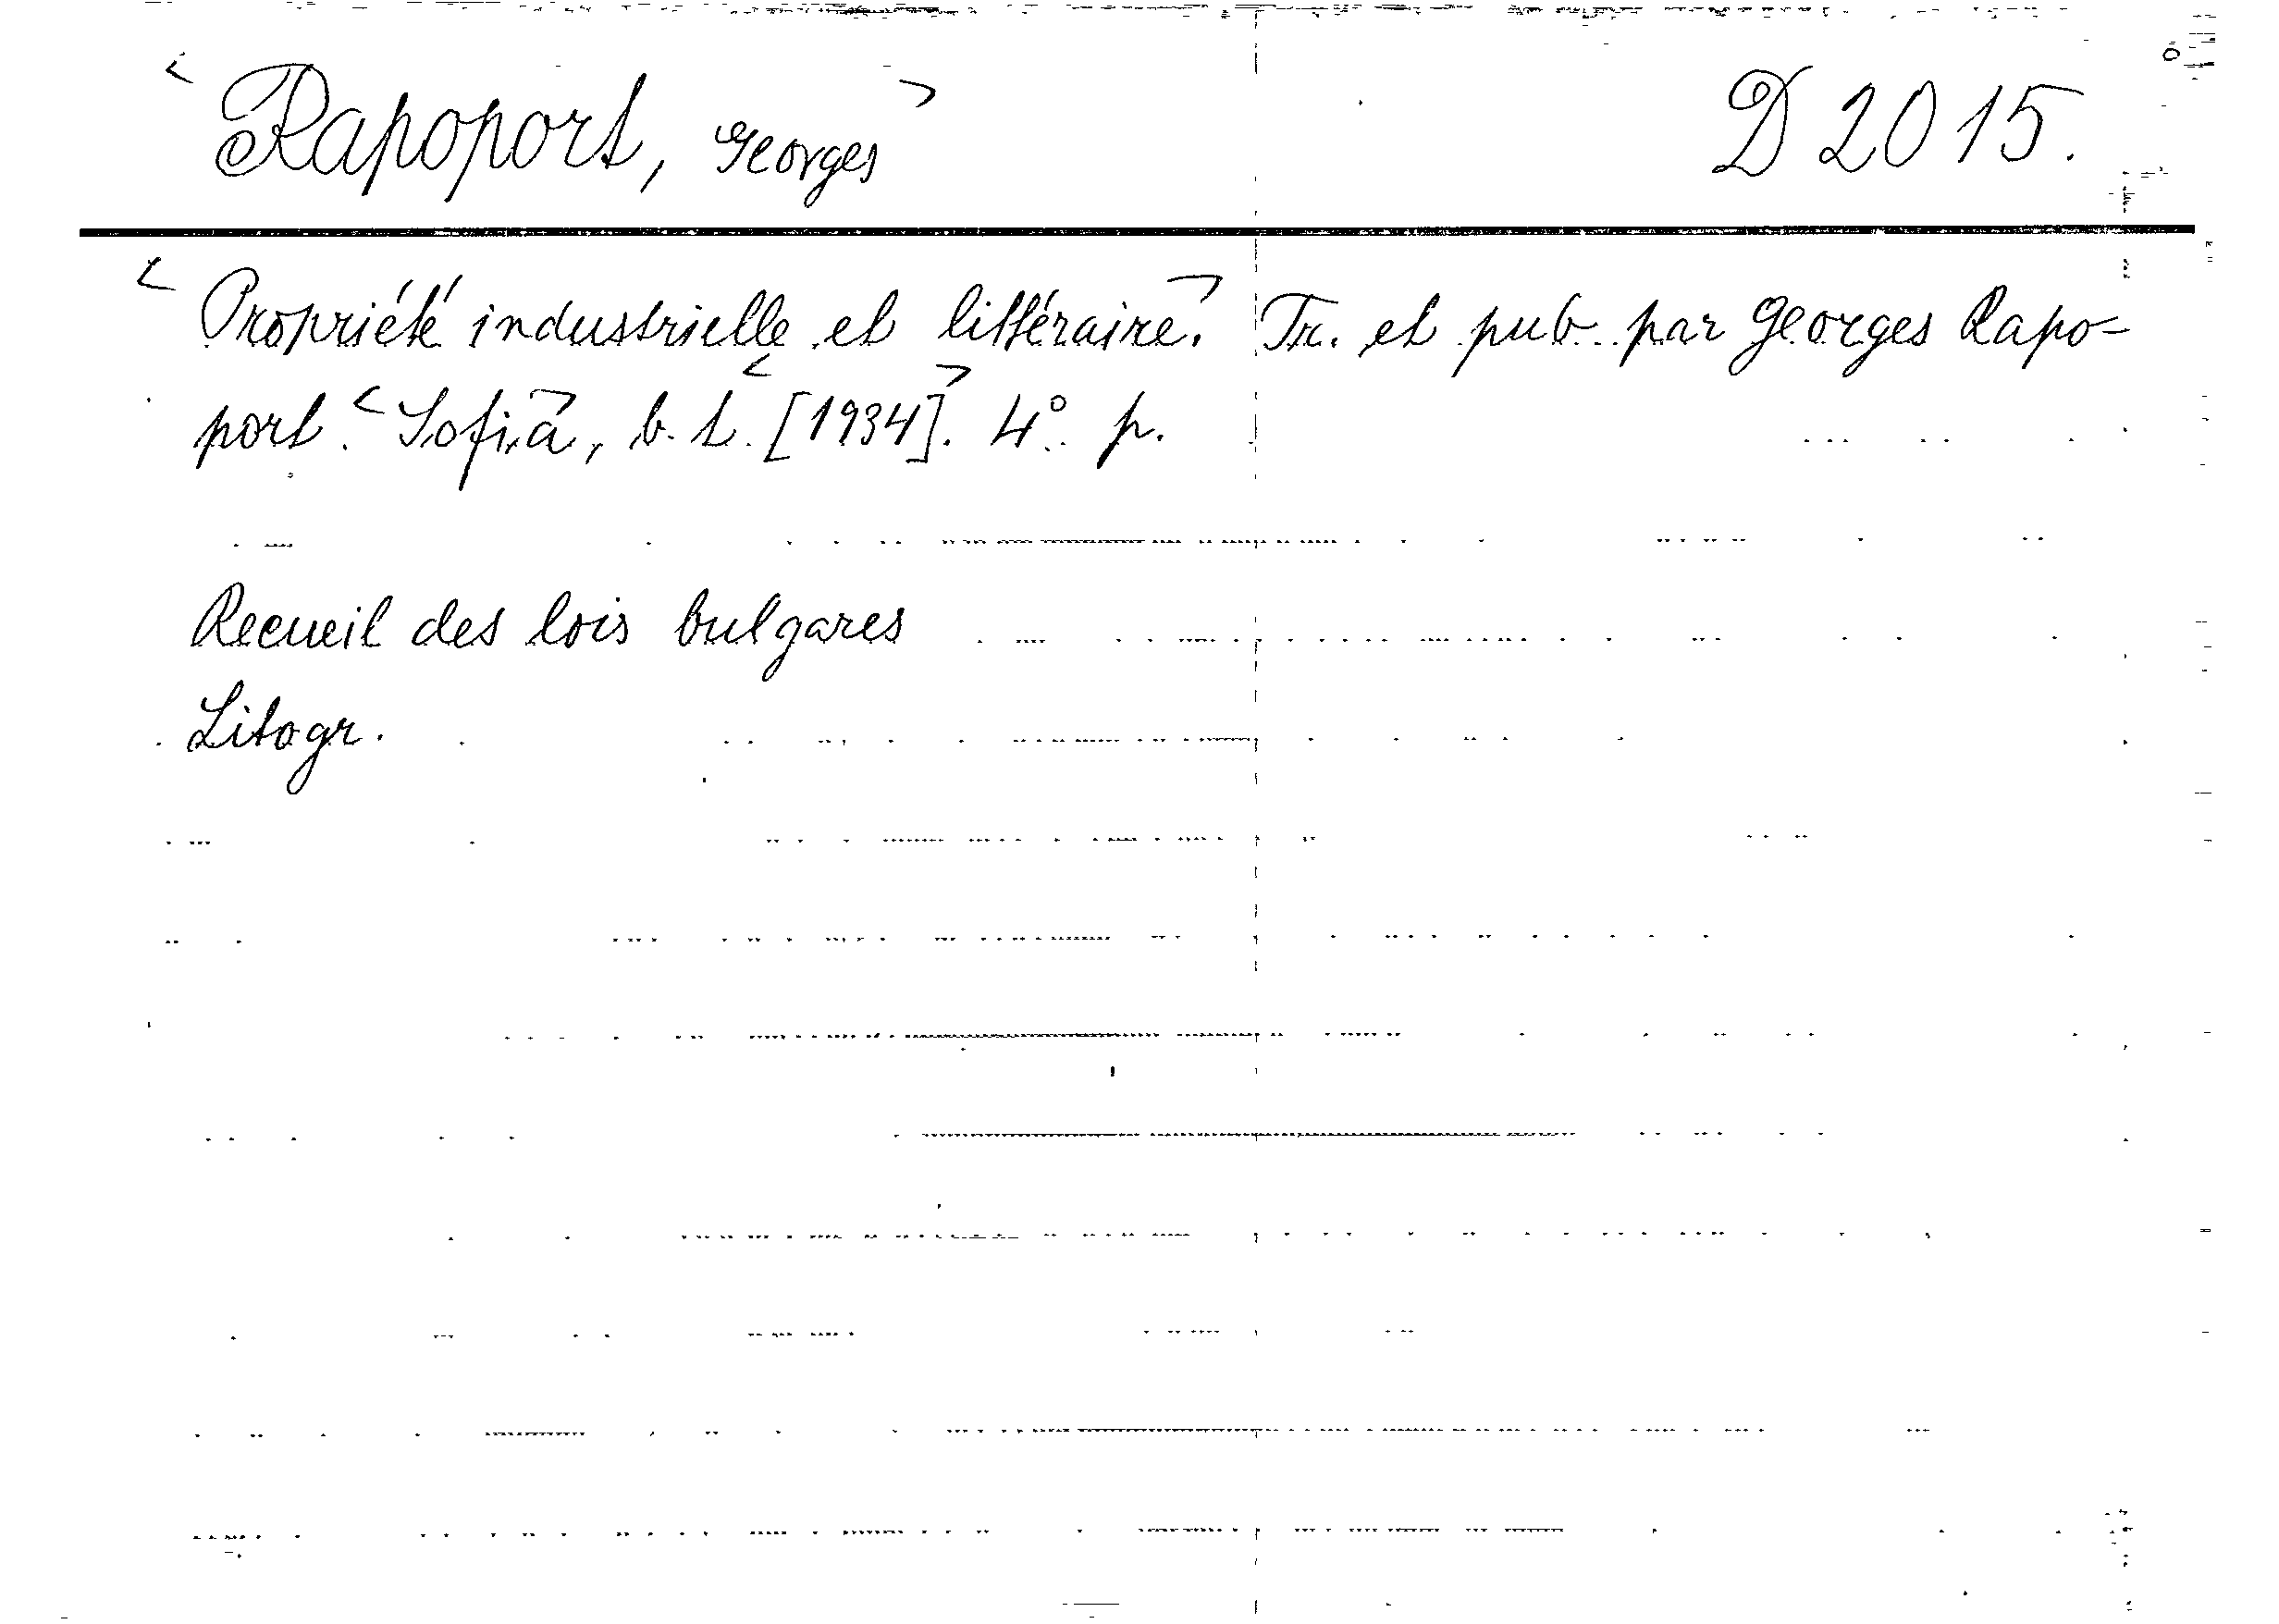 < Rapoport, Georges > D 2015.
< Propriété industrielle et littéraire. > Tr. et pub. par Georges Rapo-
port. < Sofia >, b. t. < [1934] >. 4°. p.
Recueil des lois bulgares
Litogr.